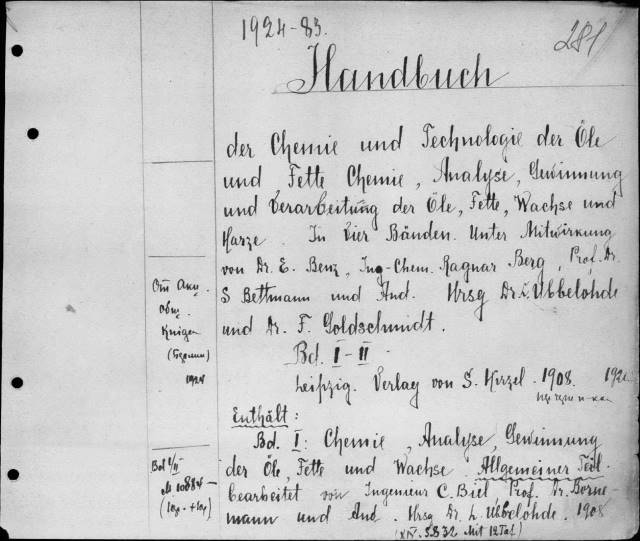 1924-83.
281
Handbuch
der Chemie und Technologie der Öle
und Fette Chemie, Analyse, Gewinnung
und Verarbeitung der Öle, Fette, Wachse und
Harze. In Vier Bänden. Unter Mitwirkung
von Dr. E. Benz, Ing-Chem. Ragnar Berg, Prof. Dr.
S Bettmann und And. Hrsg Dr. L. Ubbelohde
und Dr. F. Goldschmidt.
Bd. I-II
Leipzig. Verlag von S. Hirzel. 1908. 192
Enthält:
Bd. I: Chemie, Analyse, Gewinnung
der Öle, Fette und Wachse. Allgemeiner Teil.
bearbeitet von Ingenieur C. Biel, Prof. Dr. Borne
mann und And. Hrsg Dr. L. Ubbelohde. 1908
(XIV. S. 832 Mit 12 Taf)
От Аку.
Общ.
Книга
(Берлин)
1924
Bd I/II
M. 10884-